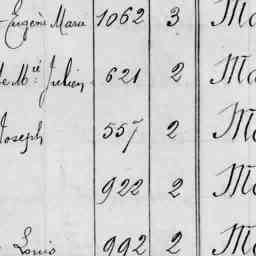 Eugène Marie 1062 3 Ma
de Mie Julien 621 2 Ma
Joseph 557 2 Ma
922 2 Ma
Louis 992 2 Ma